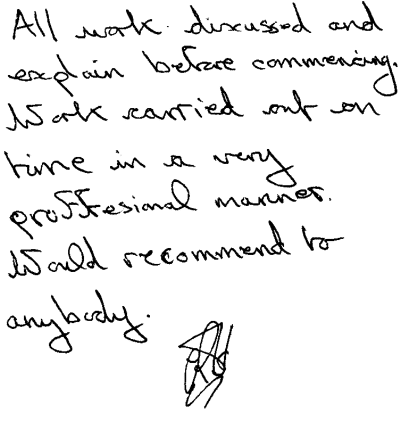 All work discussed and
explain before commencing.
Work carried out on
time in a very
proffesional manner.
Would recommend to
anybody.